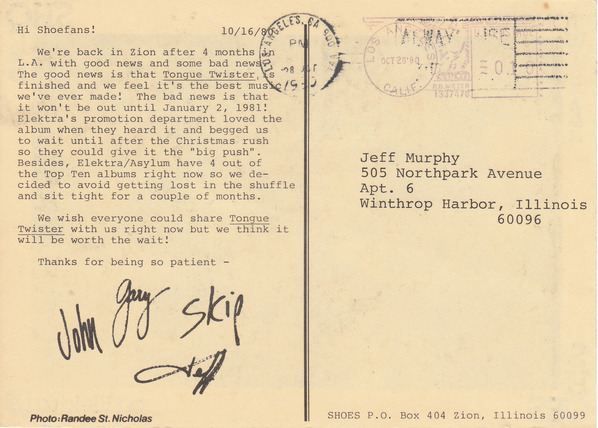 Hi Shoefans! 10/16/80
We're back in Zion after 4 months in
L.A. with good news and some bad news.
The good news is that Tongue Twister is
finished and we feel it's the best music
we've ever made! The bad news is that
it won't be out until January 2, 1981!
Elektra's promotion department loved the
album when they heard it and begged us
to wait until after the Christmas rush
so they could give it the "big push".
Besides, Elektra/Asylum have 4 out of
the Top Ten albums right now so we de-
cided to avoid getting lost in the shuffle
and sit tight for a couple of months.
We wish everyone could share Tongue
Twister with us right now but we think it
will be worth the wait!
Thanks for being so patient -
John Gary Skip
Jeff
Photo: Randee St. Nicholas
LOS ANGELES, CA
PM
LOS
OCT 28'80
CALIF.
Jeff Murphy
505 Northpark Avenue
Apt. 6
Winthrop Harbor, Illinois
60096
SHOES P.O. Box 404 Zion, Illinois 60099